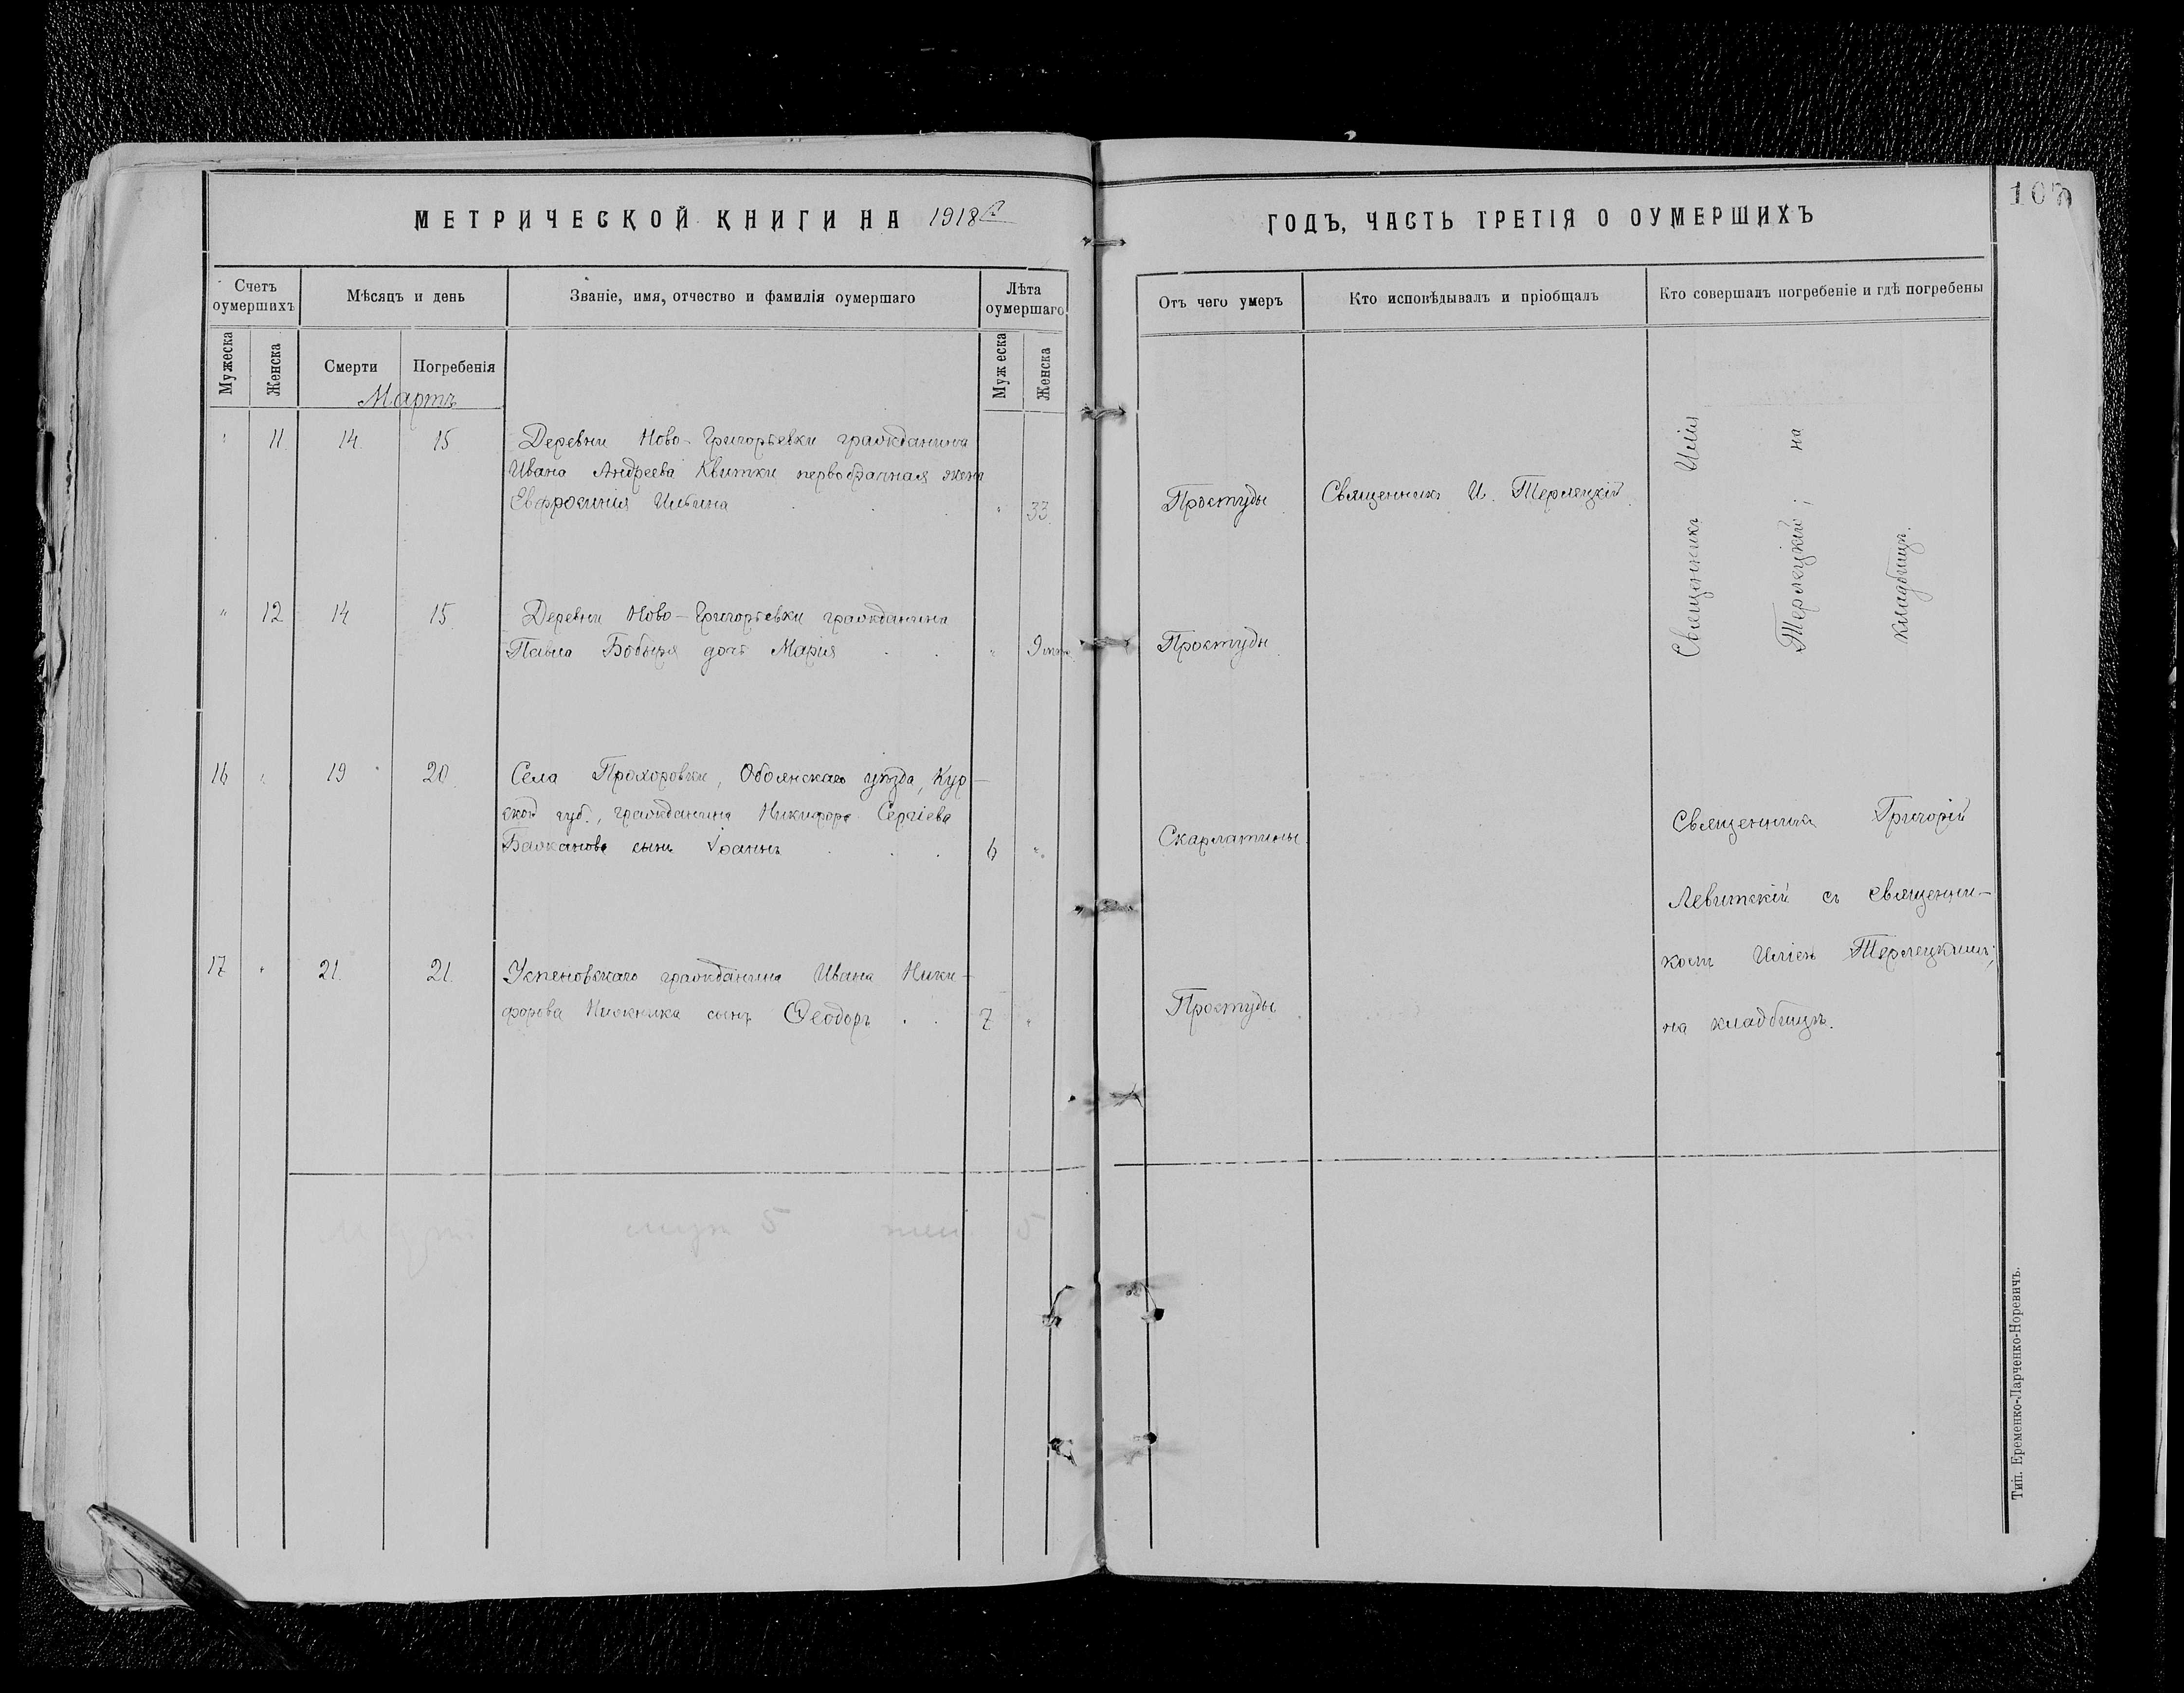 МЕТРИЧЕСКОЙ КНИГИ НА 1918й
Счетъ оумершихъ
Мѣсяцъ и день
Званіе, имя, отчество и фамилія оумершаго
Лѣта оумершаго
Мужеска
Женска
Смерти
Погребенія
Муж еска
Женска
Мартъ
" 11 14 15 Деревни Ново-Григорьевки гражданина
Ивана Андреева Квитки первобрачная жена
Евфросинія Ильина " 33.
" 12 14 15. Деревни Ново-Григорьевки гражданина
Павла Бобыря дочь Марія " 9
16 " 19 20 Села Прохоровки, Обоянскаго уѣзда, Кур-
ской губ., гражданина Никифора Сергіева
сынъ Іоаннъ 6 "
17 " 21. 21. Успеновскаго гражданина Ивана Ники-
форова сынъ Ѳеодоръ 7 "
Мартъ муж 5 жен 5
ГОДЪ, ЧАСТЬ ТРЕТІЯ О ОУМЕРШИХЪ
Отъ чего умеръ
Кто исповѣдывалъ и пріобщалъ
Кто совершалъ погребеніе и гдѣ погребены
Простуды Священникъ И. Терлецкій.
Священникъ Илія
Терлецкій; на
кладбищѣ.
Простуды.
Скарлатины.
Священникъ Григорій
Левитскій съ священни-
комъ Иліею Терлецкимъ;
на кладбищѣ.
Простуды.
Тип. Еременко-Ларченко-Норевичъ.